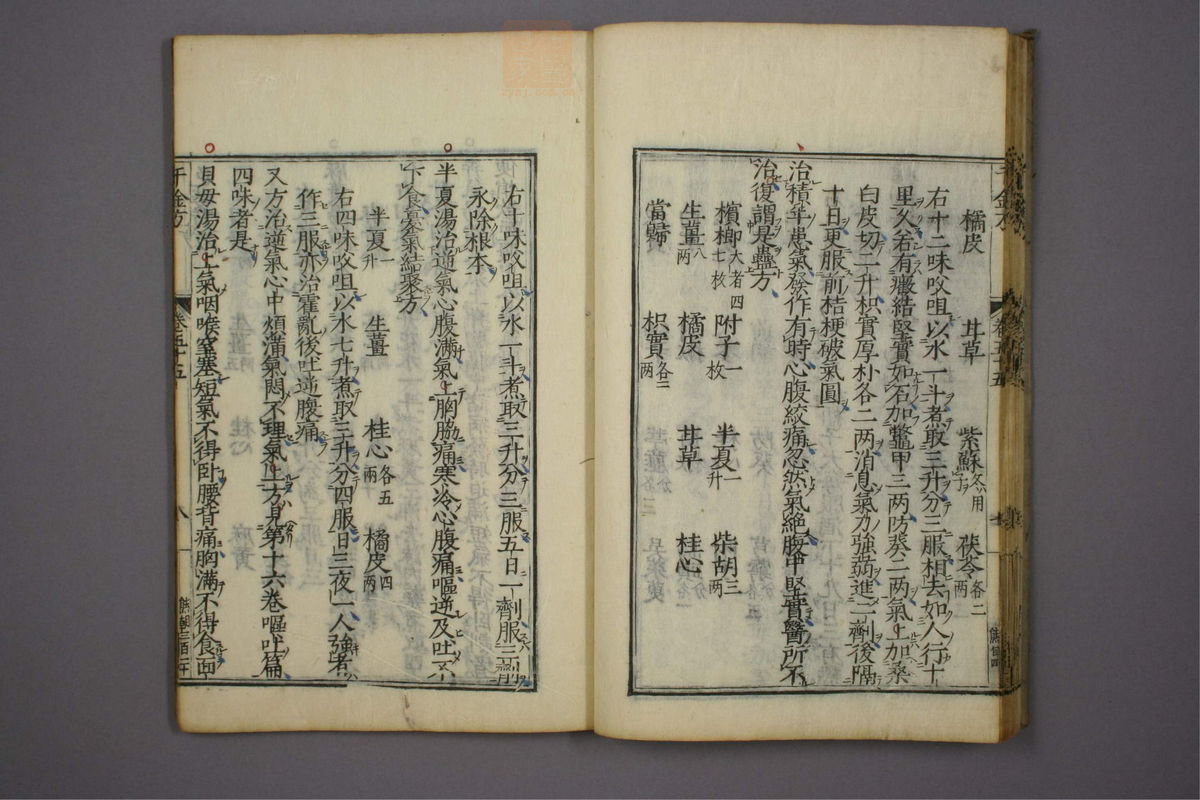 橘皮 甘草 紫蘇冬用子 茯苓各二两
右十二味㕮咀以水一斗煮取三升分三服相去如人行十
里久若有癥結堅實如石加鱉甲三两防葵二两氣上加桑
白皮切二升枳實厚朴各二两消息氣力強弱進二劑後隔
十日更服前桔梗破氣圓
治積年患氣發作有時心腹絞痛忽然氣絶腹中堅實醫所不
治復謂是蠱方
檳榔大者四七枚 附子一枚 半夏一升 柴胡三两
生薑八两 橘皮 甘草 桂心
當歸 枳實各二两
千金方 卷五十五
右十味㕮咀以水一斗煮取三升分三服五日一劑服三劑
永除根本
半夏湯治逆氣心腹滿氣上胸脇痛寒冷心腹痛嘔逆及吐不
下食憂氣結聚方
半夏一升 生薑 桂心各五两 橘皮四两
右四味㕮咀以水七升煮取三升分四服日三夜一人強者
作三服亦治霍亂後吐逆腹痛
又方治逆氣心中煩滿氣悶不理氣上方見第十六卷嘔吐篇
四味者是
貝母湯治上氣咽喉窒塞短氣不得卧腰背痛胸滿不得食面
千金方 卷五十五 八